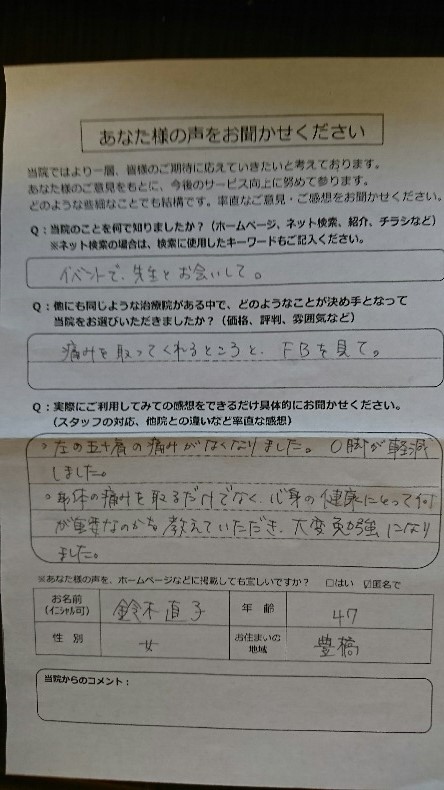 あなた様の声をお聞かせください
当院ではより一層、皆様のご期待に応えていきたいと考えております。
あなた様のご意見をもとに、今後のサービス向上に努めて参ります。
どのような些細なことでも結構です。率直なご意見・ご感想をお聞かせください。
Q：当院のことを何で知りましたか？（ホームページ、ネット検索、紹介、チラシなど）
※ネット検索の場合は、検索に使用したキーワードもご記入ください。
イベントで、先生とお会いして。
Q：他にも同じような治療院がある中で、どのようなことが決め手となって
当院をお選びいただきましたか？（価格、評判、雰囲気など）
痛みを取ってくれるところと、FBを見て。
Q：実際にご利用してみての感想をできるだけ具体的にお聞かせください。
（スタッフの対応、他院との違いなど率直な感想）
・左の五十肩の痛みがなくなりました。O脚が軽減
しました。
・身体の痛みを取るだけでなく、心身の健康にとって何
が重要なのかを教えていただき、大変勉強になり
ました。
※あなた様の声を、ホームページなどに掲載しても宜しいですか？ □はい ☑匿名で
お名前
（イニシャル可） 鈴木直子 年 齢 47
性 別 女 お住まいの
地域 豊橋
当院からのコメント：